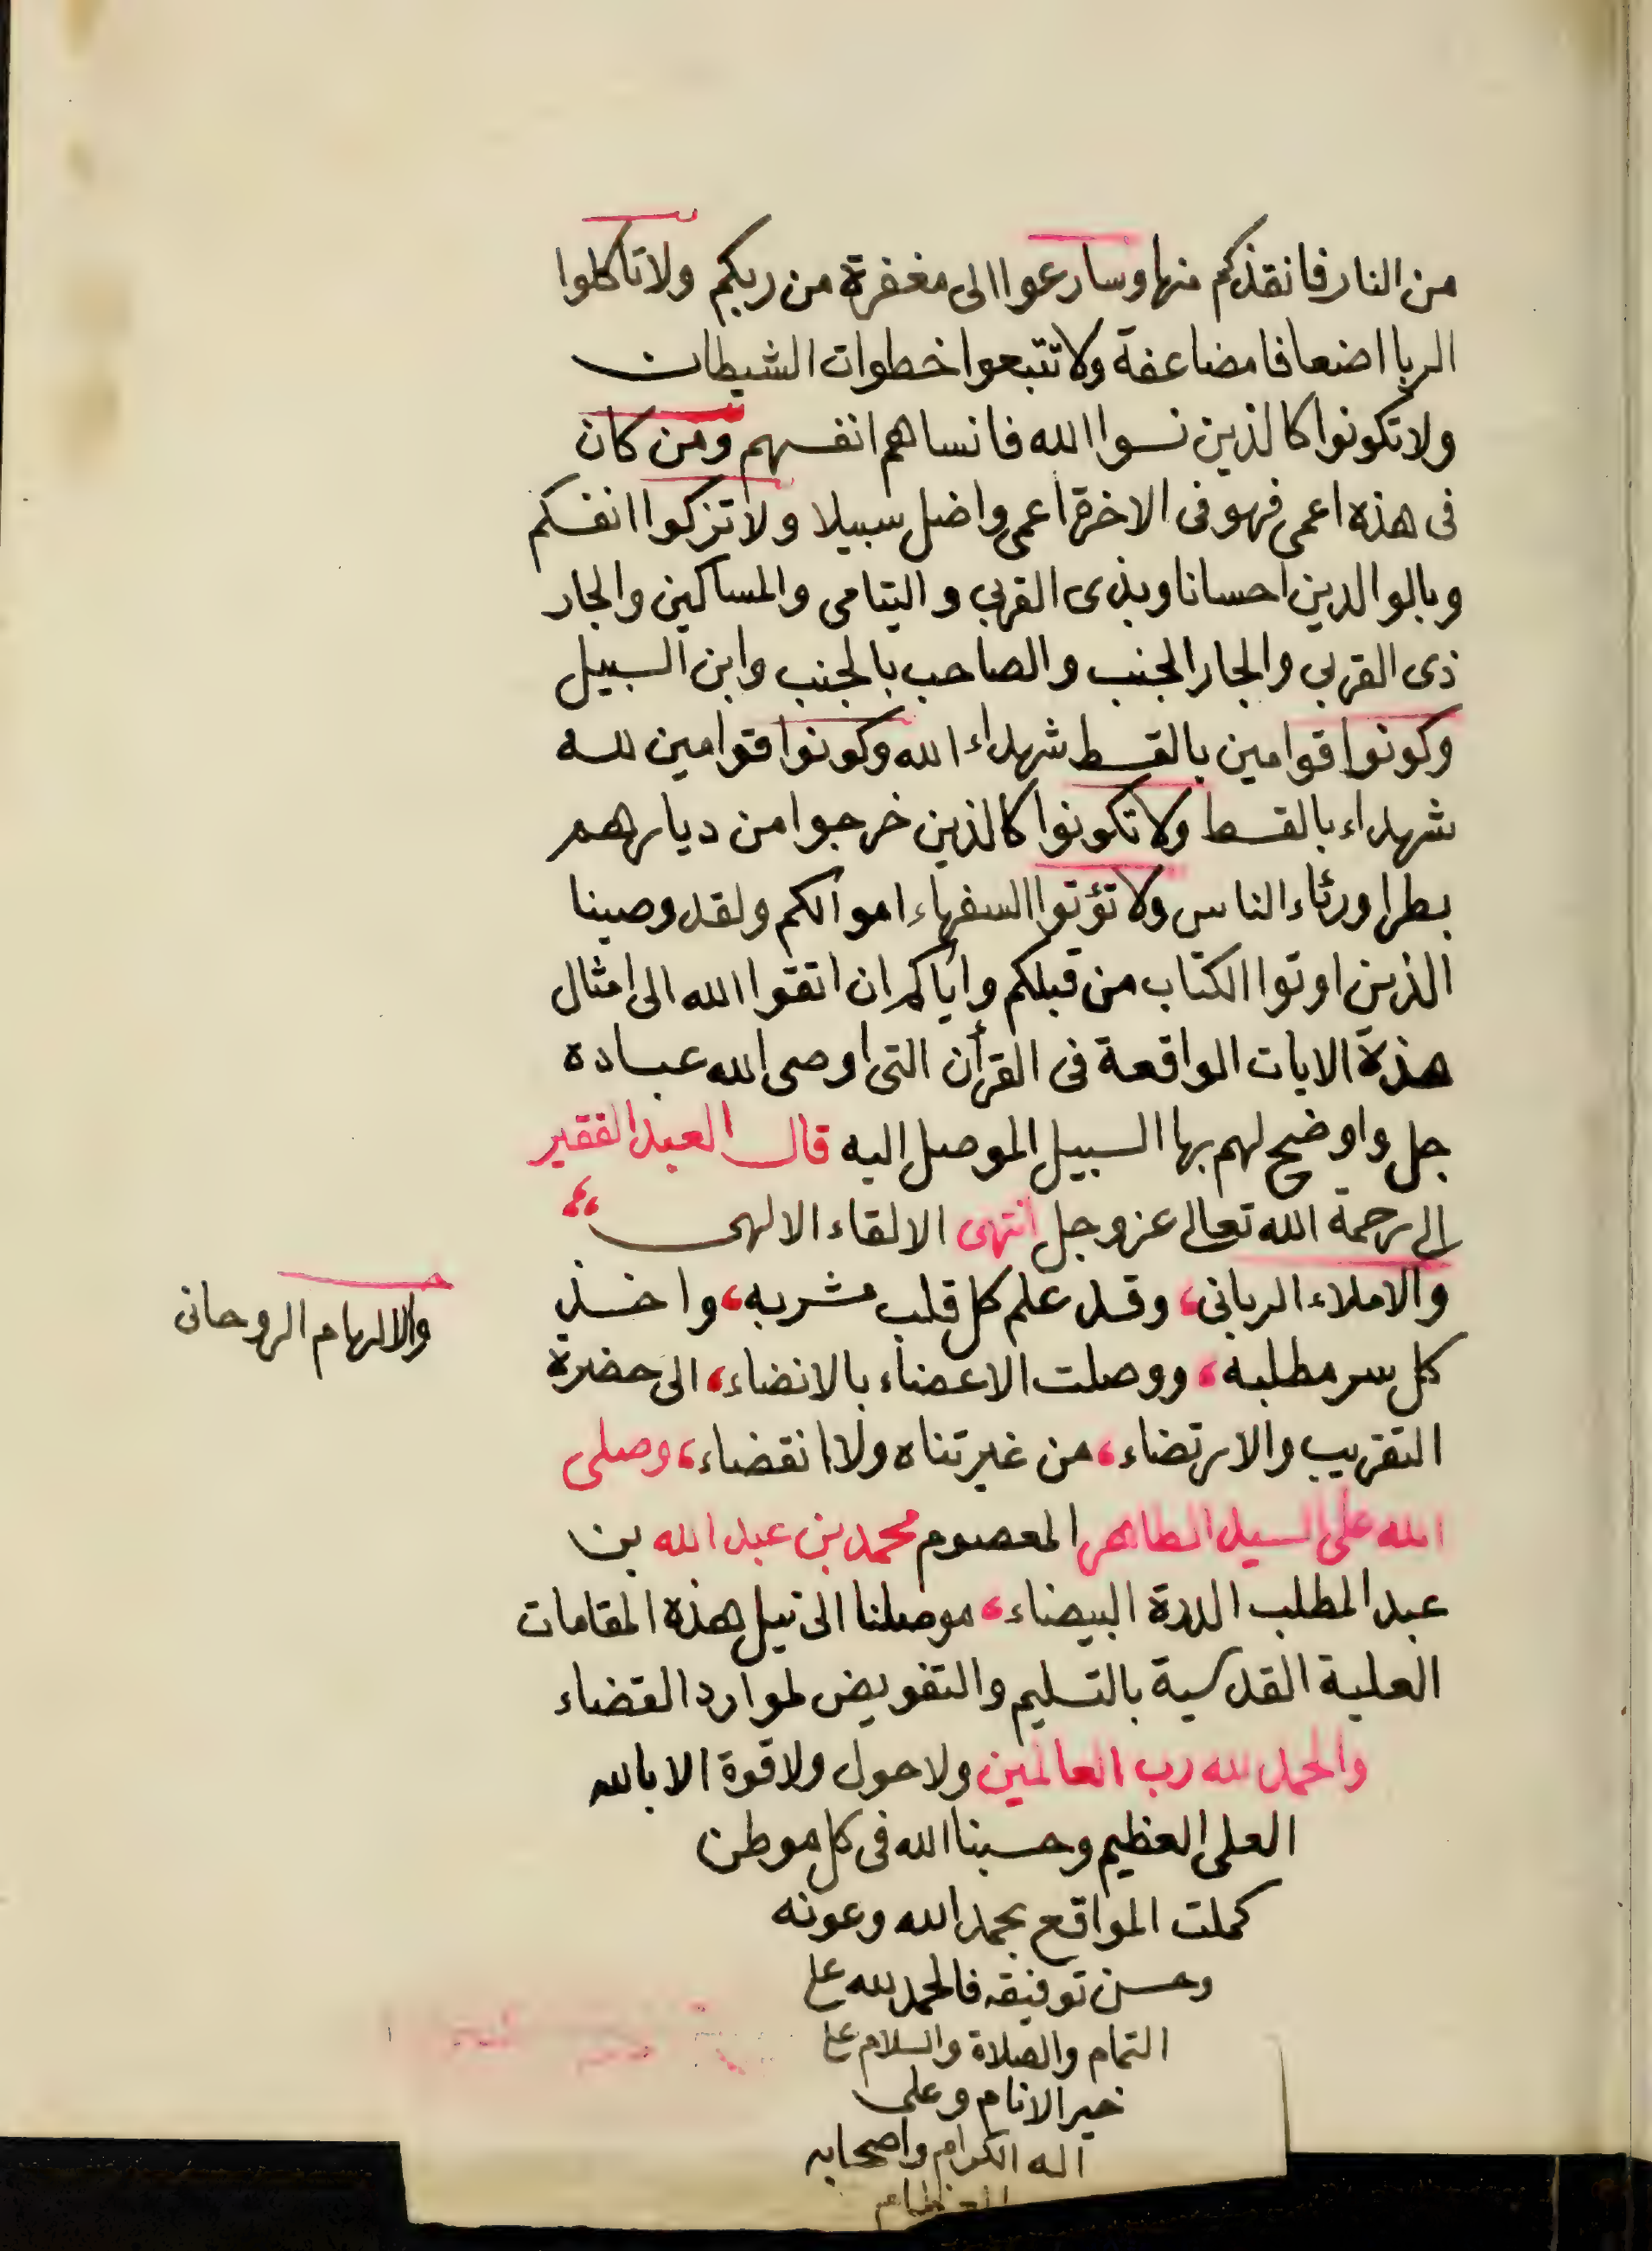 من النار فانقذكم منها وسارعوا الى مغفرة من ربكم ولا تاكلوا
الربا اضعافا مضاعفة ولا تتبعوا خطوات الشيطان
ولا تكونوا كالذين نسوا الله فانساهم انفسهم ومن كان
فى هذه اعمى فهو فى الاخرة اعمى واضل سبيلا ولا تزكوا انفسكم
وبالوالدين احسانا وبذى القربى واليتامى والمساكين والجار
ذى القربى والجار الجنب والصاحب بالجنب وابن السبيل
وكونوا قوامين بالقسط شهداء الله وكونوا قوامين لله
شهداء بالقسط ولا تكونوا كالذين خرجوا من ديارهم
بطرا ورئاء الناس ولا تؤتوا السفهاء اموالكم ولقد وصينا
الذين اوتوا الكتاب من قبلكم واياكم ان اتقوا الله الى امثال
هذة الايات الواقعة فى القرأن التى اوصى الله عباده
جل واوضح لهم بها السبيل الموصل اليه قال العبد الفقير
الى رحمة الله تعالى عز وجل انتهى الالقاء الالهى
والاملاء الربانى، وقد علم كل قلب مشربه، واخذ
والالهام الروحانى
كل سر مطلبه، ووصلت الاعضاء بالانضاء، الى حضرة
التقريب والارتضاء، من غير تناه ولا انقضاء، وصلى
الله على السيد الطاهر المعصوم محمد بن عبد الله بن
عبد المطلب الدرة البيضاء، موصلنا الى نيل هذه المقامات
العلية القدسية بالتسليم والتفويض لموارد القضاء
والحمد لله رب العالمين ولا حول ولا قوة الا بالله
العلى العظيم وحسبنا الله فى كل موطن
كملت المواقع بحمد الله وعونه
وحسن توفيقه فالحمد لله على
التمام والصلاة والسلام على
خير الانام وعلى
اله الكرام واصحابه
العظام